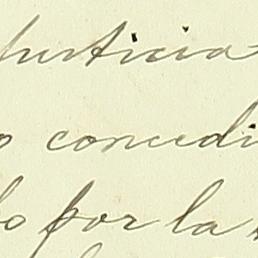 Justicia
o concedi
lo por la